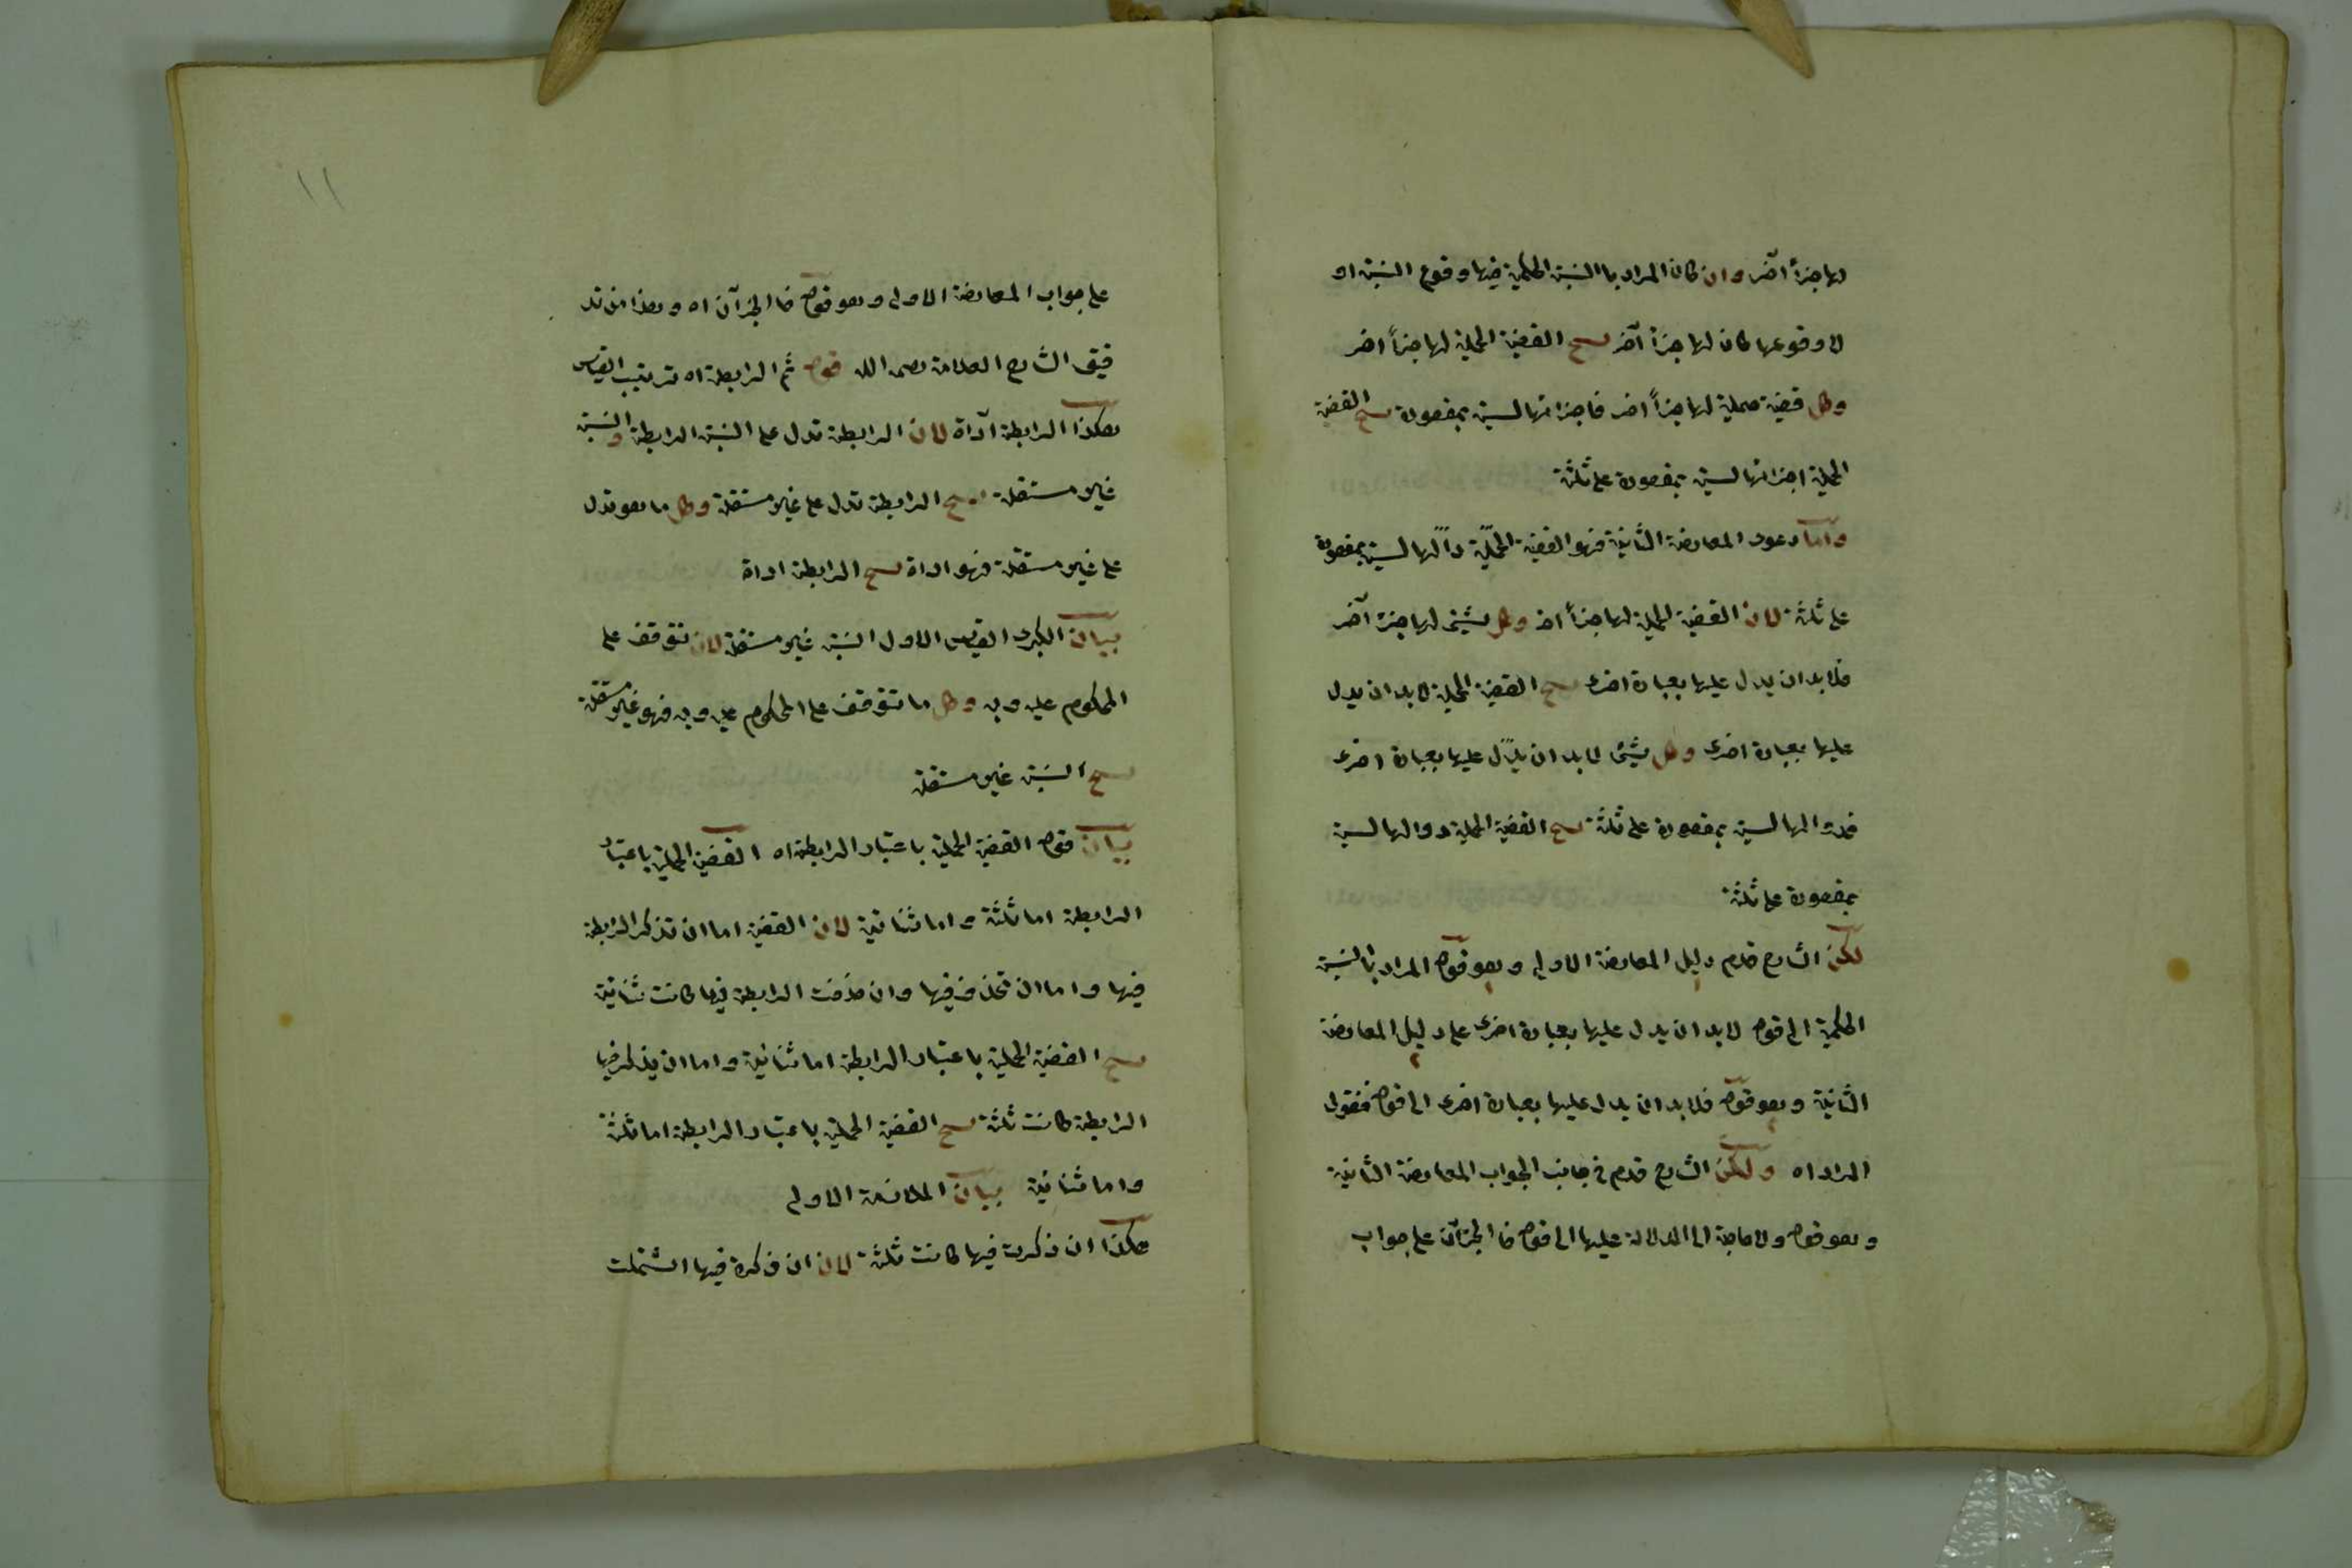 لها جزأ آخر وان كان المراد با النسبة الحكمية فيها وقوع النسبة او
لا وقوعها كان لها جزأ آخر نتج القضية الحملية لها جزأ اخر
وكل قضية حملية لها جزأ اخر فاجزائها ليست بمقصورة نتج القضية
الحملية اجزائها ليست بمقصورة على ثلثة
واما دعوى المعارضة الثانية فهو القضية الحملية دالها ليست بمقصورة
على ثلثة لان القضية الحملية لها جزأ اخر وكل شيئ لها جزء آخر
فلا بد ان يدل عليها بعبارة اخرى نتج القضية الحملية لا بد ان يدل
عليها بعبارة اخرى وكل شيئ لا بد ان يدل عليها بعبارة اخرى
فدوالها ليست بمقصورة على ثلثة نتج القضية الحملية دوالها ليست
بمقصورة على ثلثة
لكن الشارح قدم دليل المعارضة الاولى وهو قوله المراد با النسبة
الحكمية الى قوله لا بد ان يدل عليها بعبارة اخرى على دليل المعارضة
الثانية وهو قوله فلا بد ان يدل عليها بعبارة اخرى الى قوله فنقول
المراد اه ولكن الشارح قدم فى جانب الجواب المعارضة الثانية
وهو قوله ولا حاجة الى الدلالة عليها الى قوله فا الجزآن على جواب
١١
على جواب المعارضة الاولى وهو قوله فا الجزآن اه وهذا من تد
قيق الشارح العلامة رحمه الله قوله ثم الرابطة اه ترتيب القياس
هكذا الرابطة آداة لان الرابطة تدل على النسبة الرابطة والنسبة
غير مستقلة نتج الرابطة تدل على غير مستقلة وكل ما هو تدل
على غير مستقلة فهو اداة نتج الرابطة اداة
بيان الكبرى القياس الاول النسبة غير مستقلة لان تتوقف على
المحكوم عليه وبه وكل ما تتوقف على المحكوم عليه وبه فهو غير مستقلة
نتج النسبة غير مستقلة
بيان قوله القضية الحملية باعتبار الرابطة اه القضية الحملية باعتبار
الرابطة اما ثلثة واما ثنائية لان القضية اما ان تذكر الرابطة
فيها واما ان تحذف فيها وان حذفت الرابطة فيها كانت ثنائية
نتج القضية الحملية باعتبار الرابطة اما ثنائية واما ان يذكر فيها
الرابطة كانت ثلثة نتج القضية الحملية باعتبار الرابطة اما ثلثة
واما ثنائية بيان الملازمة الاولى
هكذا ان ذكرت فيها كانت ثلثة لان ان ذكرة فيها اشتملت